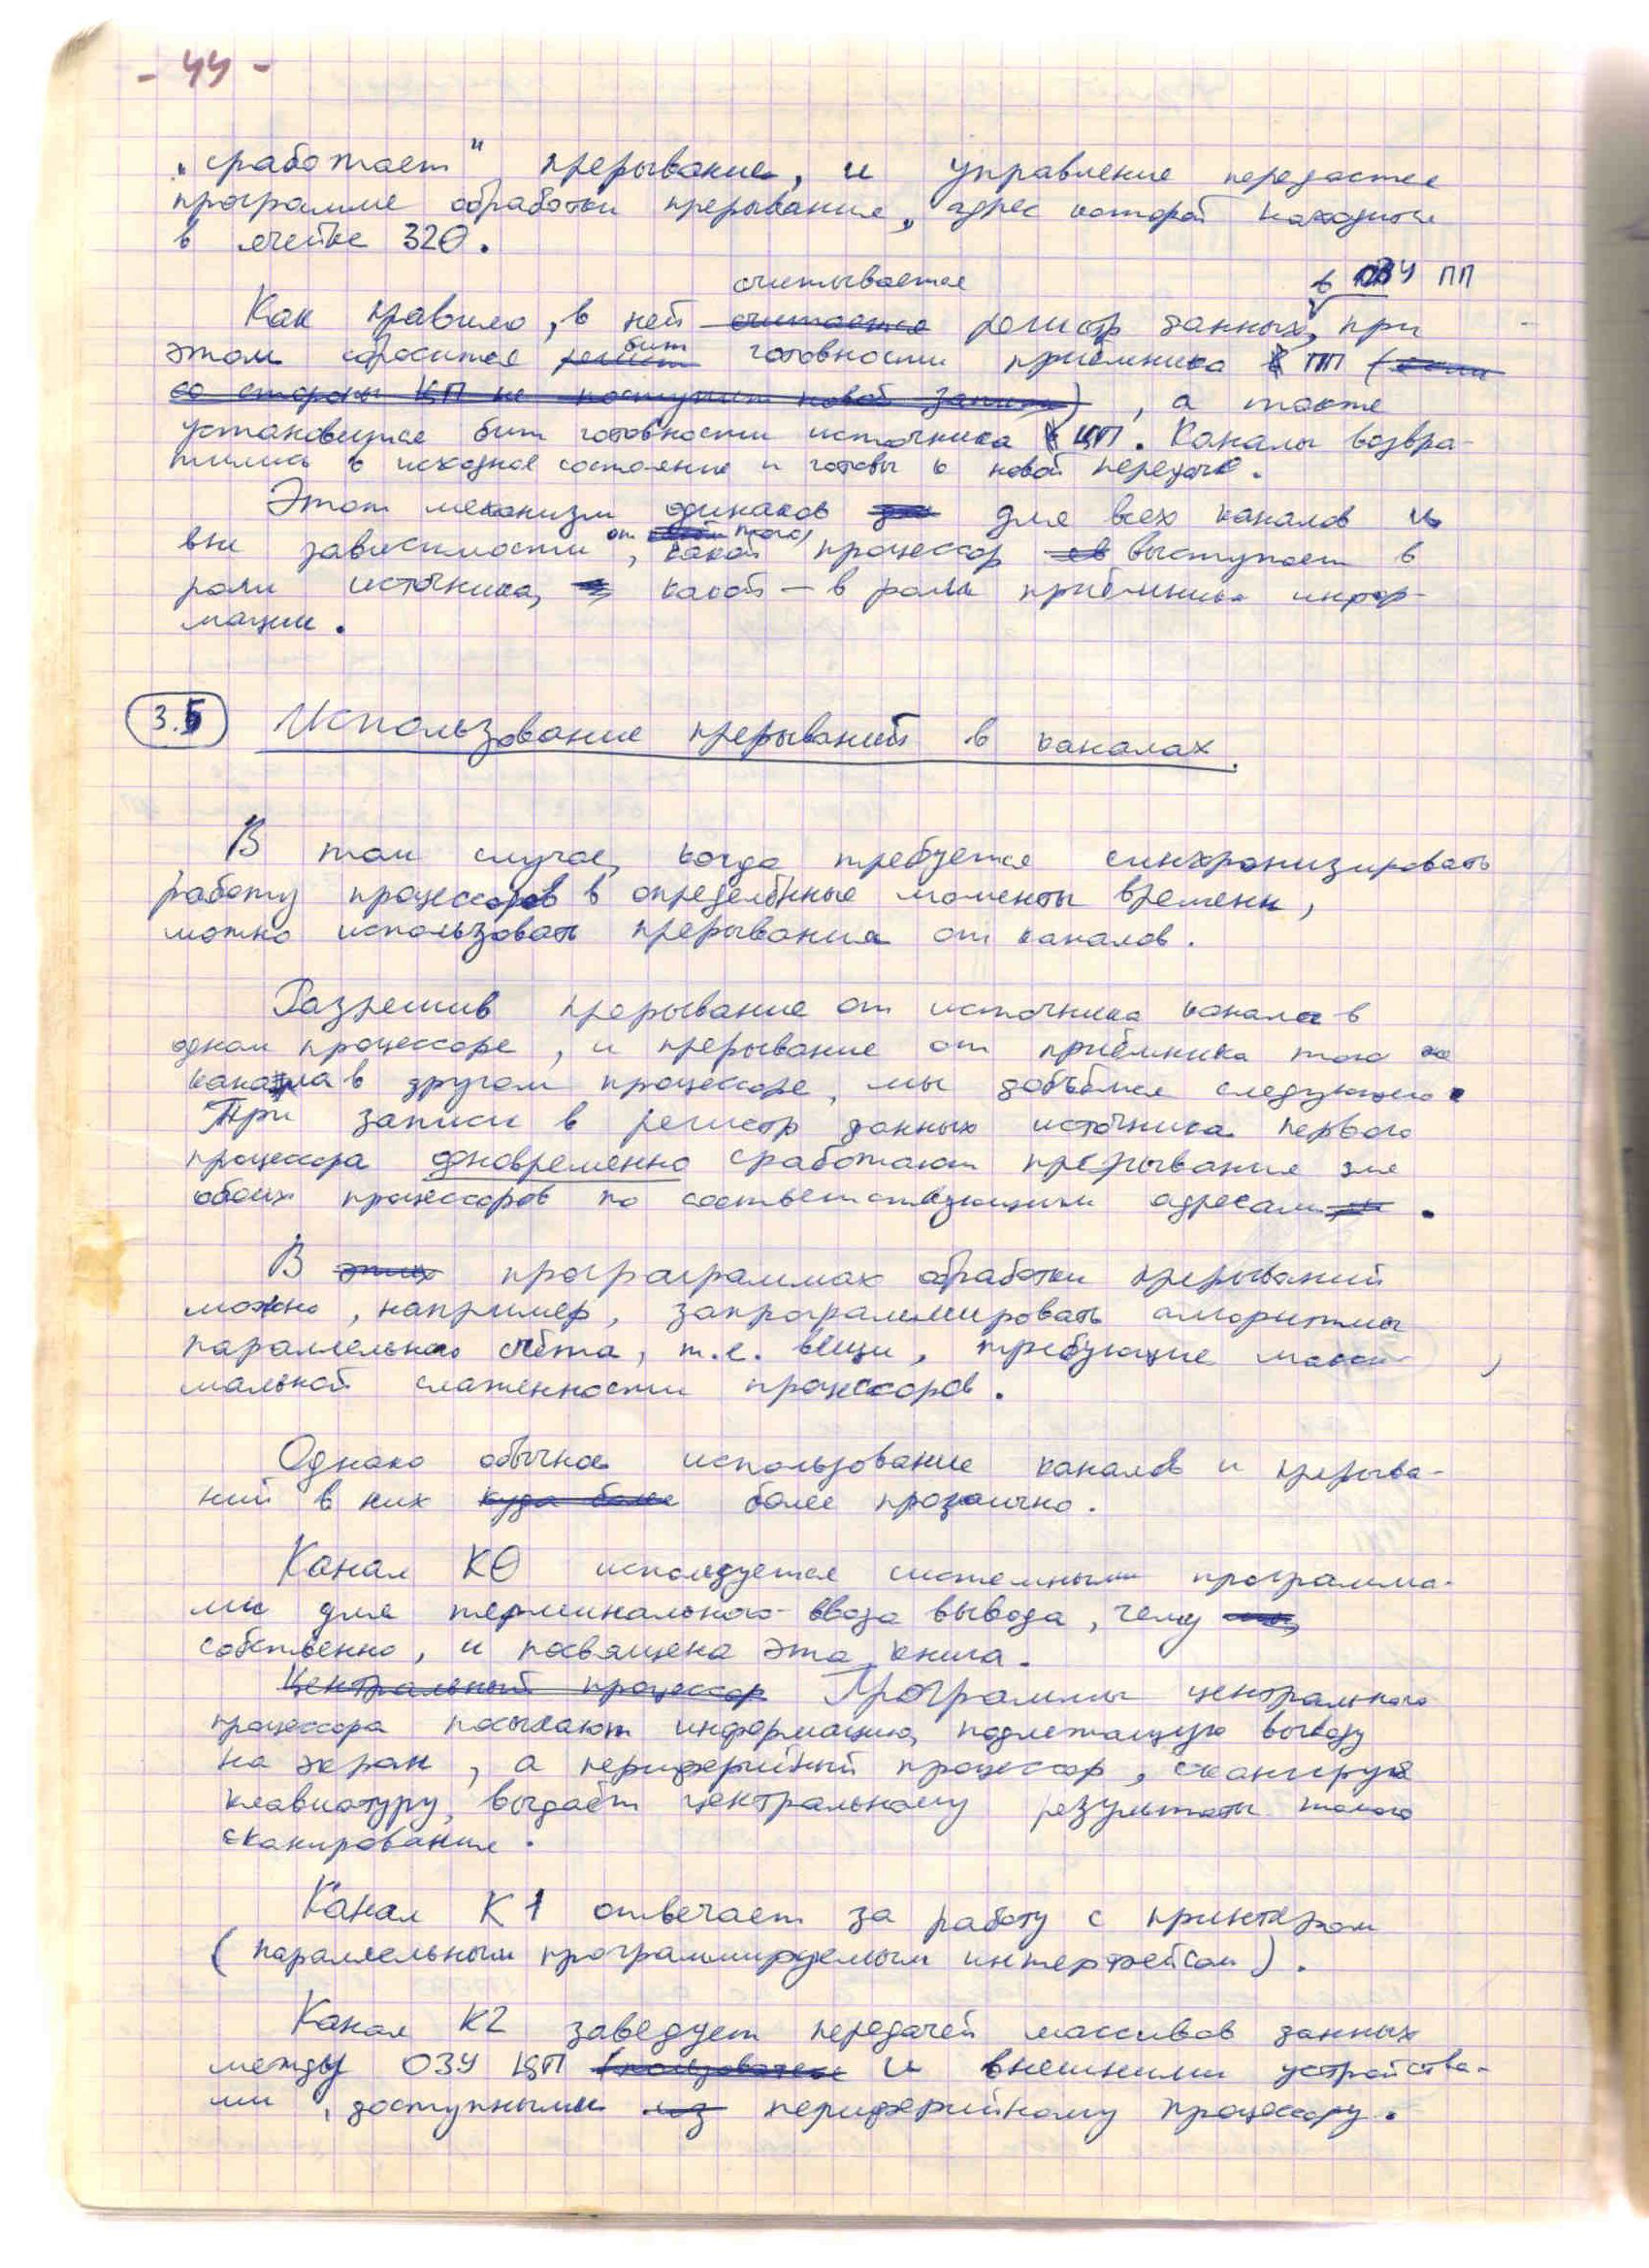 - 44 -
„сработает" прерывание, и управление передастся
программе обработки прерывания, адрес которой находится
в ячейке 320.
считывается в ОЗУ ПП
Как правило, в ней считается регистр данных, при
этом сбросится регист бит готовности приёмника в ПП (если
со стороны ЦП не поступит новой записи), а также
установится бит готовности источника в ЦП. Каналы возвра-
тились в исходное состояние и готовы к новой передаче.
Этот механизм одинаков для для всех каналов и
вне зависимости от того, какой процессор выступает в
роли источника, какой – в роли приёмника инфор-
мации.
3.5 Использование прерываний в каналах.
В том случае, когда требуется синхронизировать
работу процессоров в определённые моменты времени,
можно использовать прерывания от каналов.
Разрешив прерывание от источника канала в
одном процессоре, и прерывание от приёмника того же
канала в другом процессоре, мы добьёмся следующего.
При записи в регистр данных источника первого
процессора одновременно сработают прерывания для
обоих процессоров по соответствующим адресам.
В этих програграммах обработки прерываний
можно, например, запрограммировать алгоритмы
параллельного счёта, т.е. вещи, требующие макси-
мальной слаженности процессоров.
Однако обычное использование каналов и прерыва-
ний в них куда более более прозаично.
Канал К0 используется системными программа-
ми для терминального ввода вывода, чему
собственно, и посвящена эта книга.
Центральный процессор Программы центрального
процессора посылают информацию, подлежащую выводу
на экран, а периферийный процессор, сканируя
клавиатуру, выдаёт центральному результаты такого
сканирования.
Канал К1 отвечает за работу с принтером
(параллельным программируемым интерфейсом).
Канал К2 заведует передачей массивов данных
между ОЗУ ЦП (пользователя и внешними устройства-
ми, доступными из периферийному процессору.